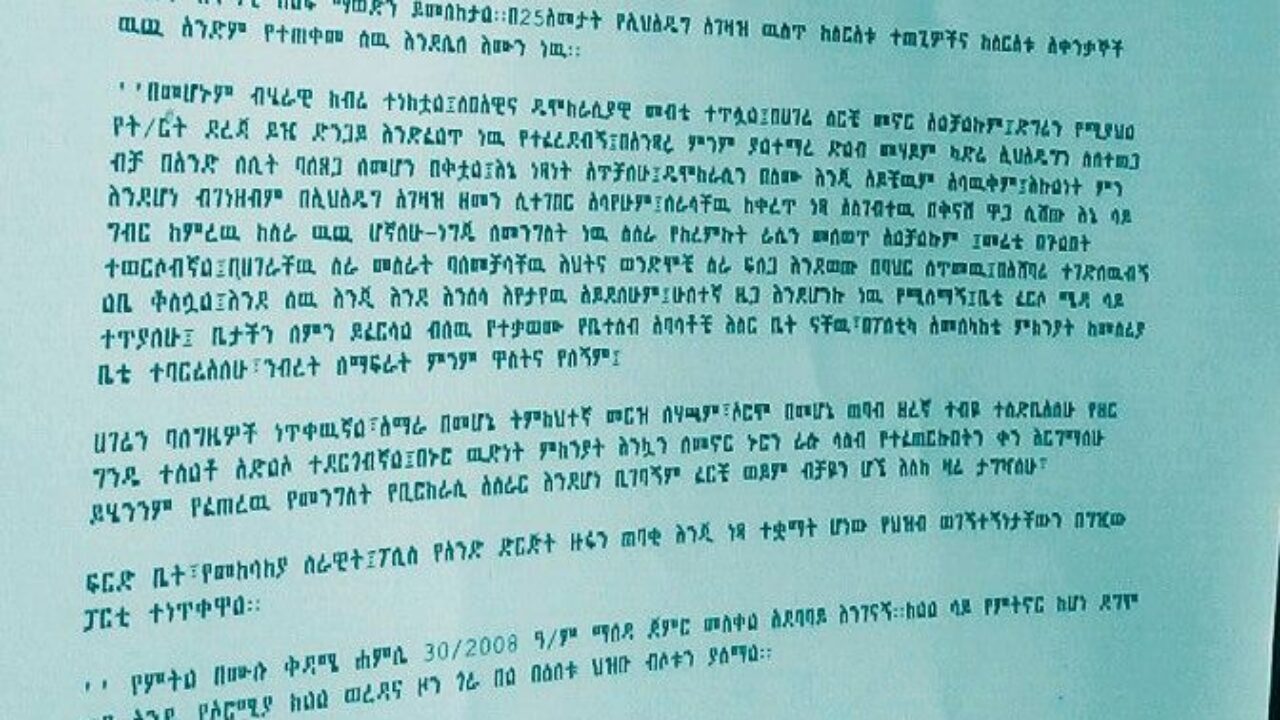 ይመለከታል።በ25አመታት የኢህአዴግ አገዛዝ ዉስጥ ከስርአቱ ተጠቂዎችና ከስርአቱ አቀንቃኞች
ዉጪ አንድም የተጠቀመ ሰዉ እንደሌለ እሙን ነዉ።
''በመሆኑም ብሄራዊ ክብሬ ተነክቷል፤ሰብአዊና ዴሞክራሲያዊ መብቴ ተጥሷል፤በሀገሬ ሰርቼ መኖር አልቻልኩም፤ድግሪን የሚያህል
የት/ርት ደረጃ ይዤ ድንጋይ እንድፈልጥ ነዉ የተፈረደብኝ፤በአንፃሩ ምንም ያልተማረ ድልብ መሃይም ካድሬ ኢህአዴግን ስለተጠጋ
ብቻ በአንድ ሰሊት ባለጸጋ ሰመሆን በቅቷል፤እኔ ነፃነት አጥቻለሁ፤ዴሞክራሲን በስሙ እንጂ አይቼዉም አላዉቅም፤እኩልነት ምን
እንደሆነ ብገነዘብም በኢህአዴግ አገዛዝ ዘመን ሲተገበር አላየሁም፤ስራላቸዉ ከቀረጥ ነፃ አስገብተዉ በቅናሽ ዋጋ ሲሸጡ እኔ ላይ
ግብር ከምረዉ ከስራ ዉጪ ሆኛለሁ-ነገዴ ለመንግስት ነዉ ልስራ የከረምኩት ራሴን መለወጥ አልቻልኩም ፤መሬቴ በጉልበት
ተወርሶብኛል፤በሀገራቸዉ ስራ መስራት ባለመቻላቸዉ እህትና ወንድሞቼ ስራ ፍለጋ እንደወጡ በባህር ሰጥመዉ፤በአሸባሪ ተገድለዉብኝ
ልቤ ቆስሏል፤እንደ ሰዉ እንጂ እንደ እንስሳ እየታየዉ አይደለሁም፤ሁለተኛ ዜጋ እንደሆንኩ ነዉ የሚሰማኝ፤ቤቴ ፈርሶ ሜዳ ላይ
ተጥያለሁ፤ ቤታችን ለምን ይፈርሳል ብለዉ የተቃወሙ የቤተሰብ አባላቶቼ እስር ቤት ናቸዉ፤በፖለቲካ አመለካከቴ ምክንያት ከመስሪያ
ቤቴ ተባርሬአለሁ፤ንብረት ለማፍራት ምንም ዋስትና የለኝም፤
ሀገሬን ባለግዜዎች ነጥቀዉኛል፤አማራ በመሆኔ ትምክህተኛ መርዝ ሰሃጫም፤ኦርሞ በመሆኔ ጠባብ ዘረኛ ተብዬ ተሰድቤአለሁ የዘር
ግንዴ ተሰልቶ አድልኦ ተደርጎብኛል፤በኑሮ ዉድነት ምክንያት እንኳን ለመኖር ኑሮን ራሱ ሳስብ የተፈጠርኩበትን ቀን እርገማለሁ
ይሄንንም የፈጠረዉ የመንግስት የቢሮክራሲ አሰራር እንደሆነ ቢገባኝም ፈርቼ ወይም ብቻዬን ሆኜ እስከ ዛሬ ታግሻለሁ፤
ፍርድ ቤት፤የመከላከያ ሰራዊት፤ፖሊስ የአንድ ድርጅት ዙፋን ጠባቂ እንጂ ነፃ ተቋማት ሆነው የህዝብ ወገኝተኝነታቸውን በግዢው
ፓርቲ ተነጥቀዋል።
'' የምትል በሙሉ ቅዳሜ ሐምሌ 30/2008 ዓ/ም ማለዳ ጀምር መስቀል አደባባይ እንገናኝ።ክልል ላይ የምትኖር ከሆነ ደግሞ
የኦሮሚያ ክልል ወረዳና ዞን ጎራ በል በእለቱ ህዝቡ ብሶቱን ያሰማል።